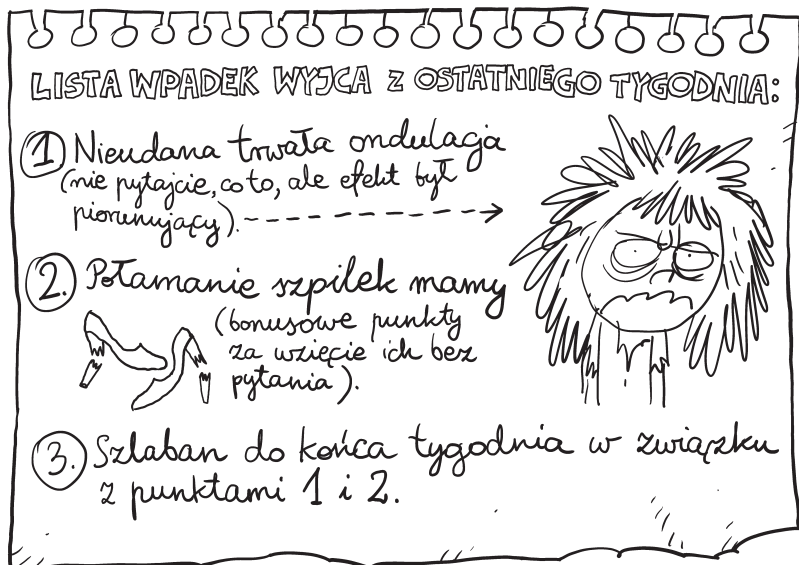 LISTA WPADEK WYJCA Z OSTATNIEGO TYGODNIA:
1 Nieudana trwała ondulacja
(nie pytajcie, co to, ale efekt był
piorunujący).
2. Połamanie szpilek mamy
(bonusowe punkty
za wzięcie ich bez
pytania).
3. Szlaban do końca tygodnia w związku
z punktami 1 i 2.